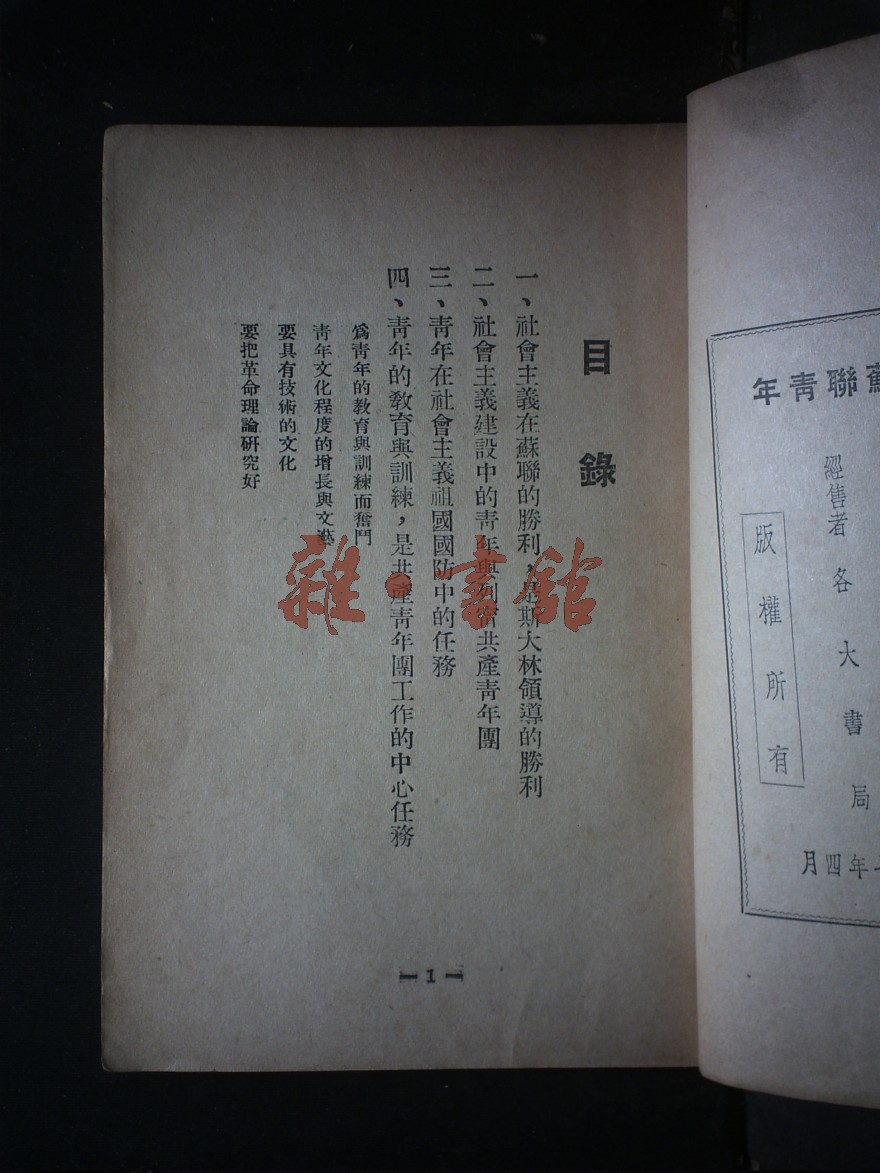 蘇聯青年
經售者 各大書局
版權所有
年四月
目錄
一、社會主義在蘇聯的勝利，是斯大林領導的勝利
二、社會主義建設中的青年與列寧共產青年團
三、青年在社會主義祖國國防中的任務
四、青年的教育與訓練，是共產青年團工作的中心任務
爲青年的教育與訓練而奮鬥
青年文化程度的增長與文藝
要具有技術的文化
要把革命理論研究好
1
雜·書館